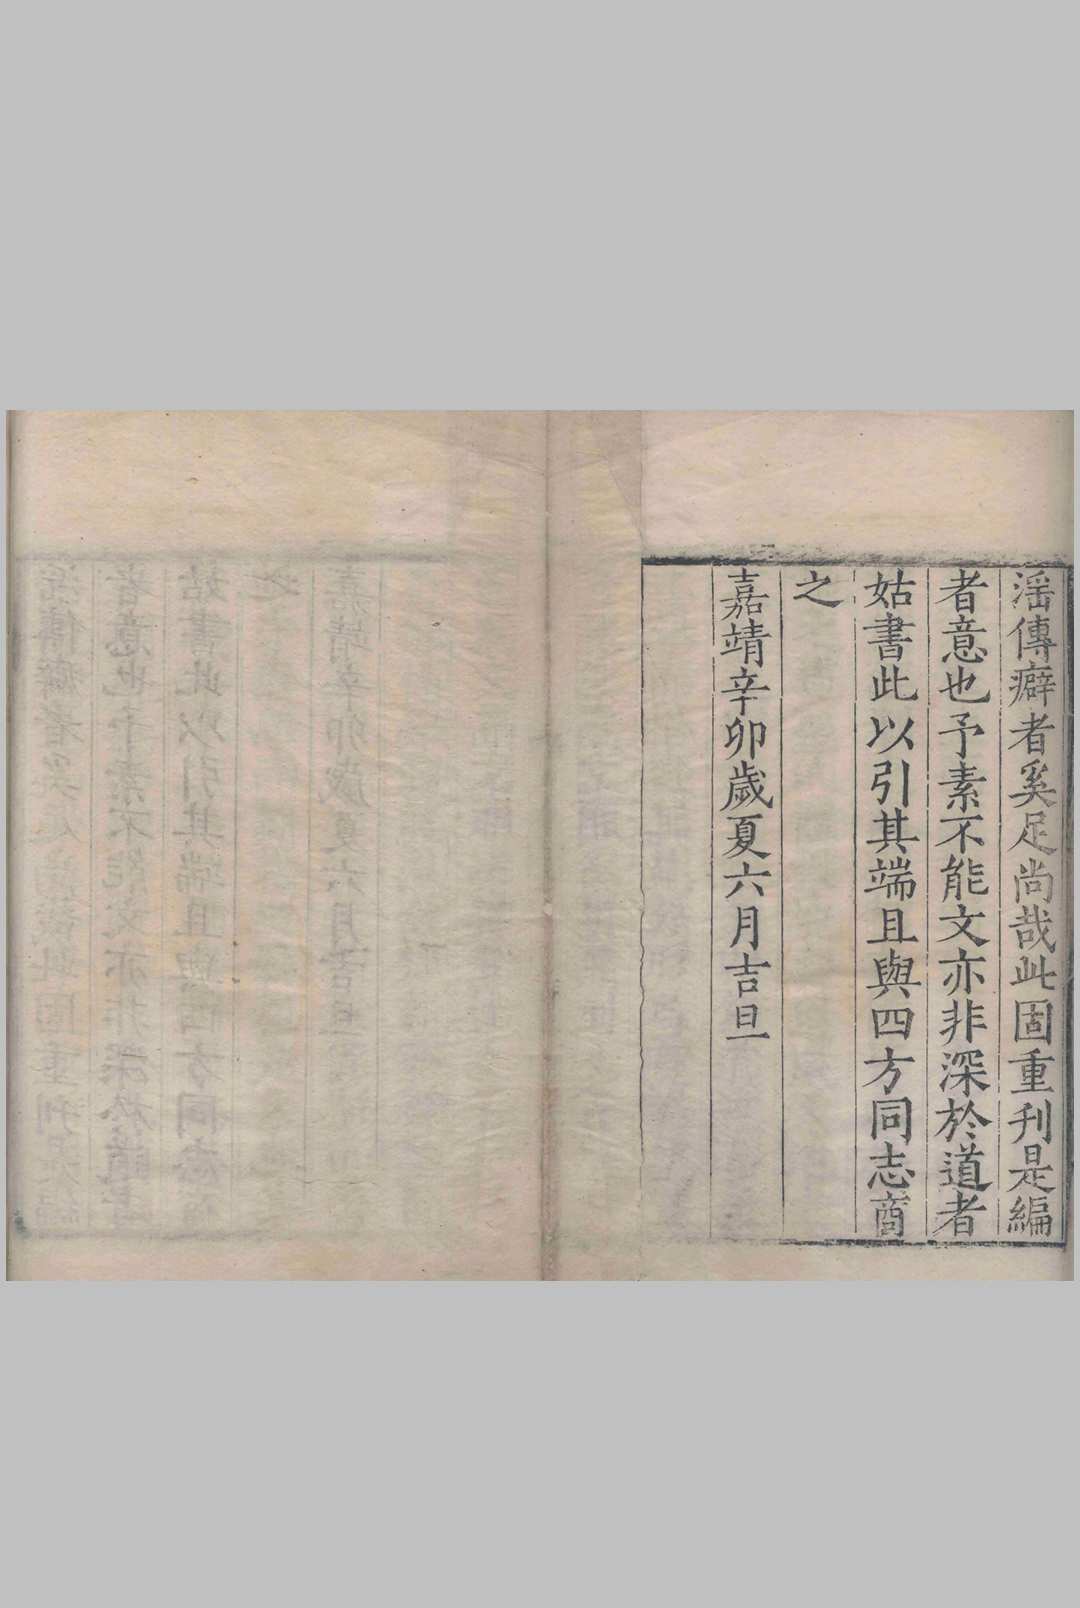 滛傳癖者奚足尚哉此固重刋是編
者意也予素不能文亦非深於道者
姑書此以引其端且與四方同志商
之
嘉靖辛卯歲夏六月吉旦